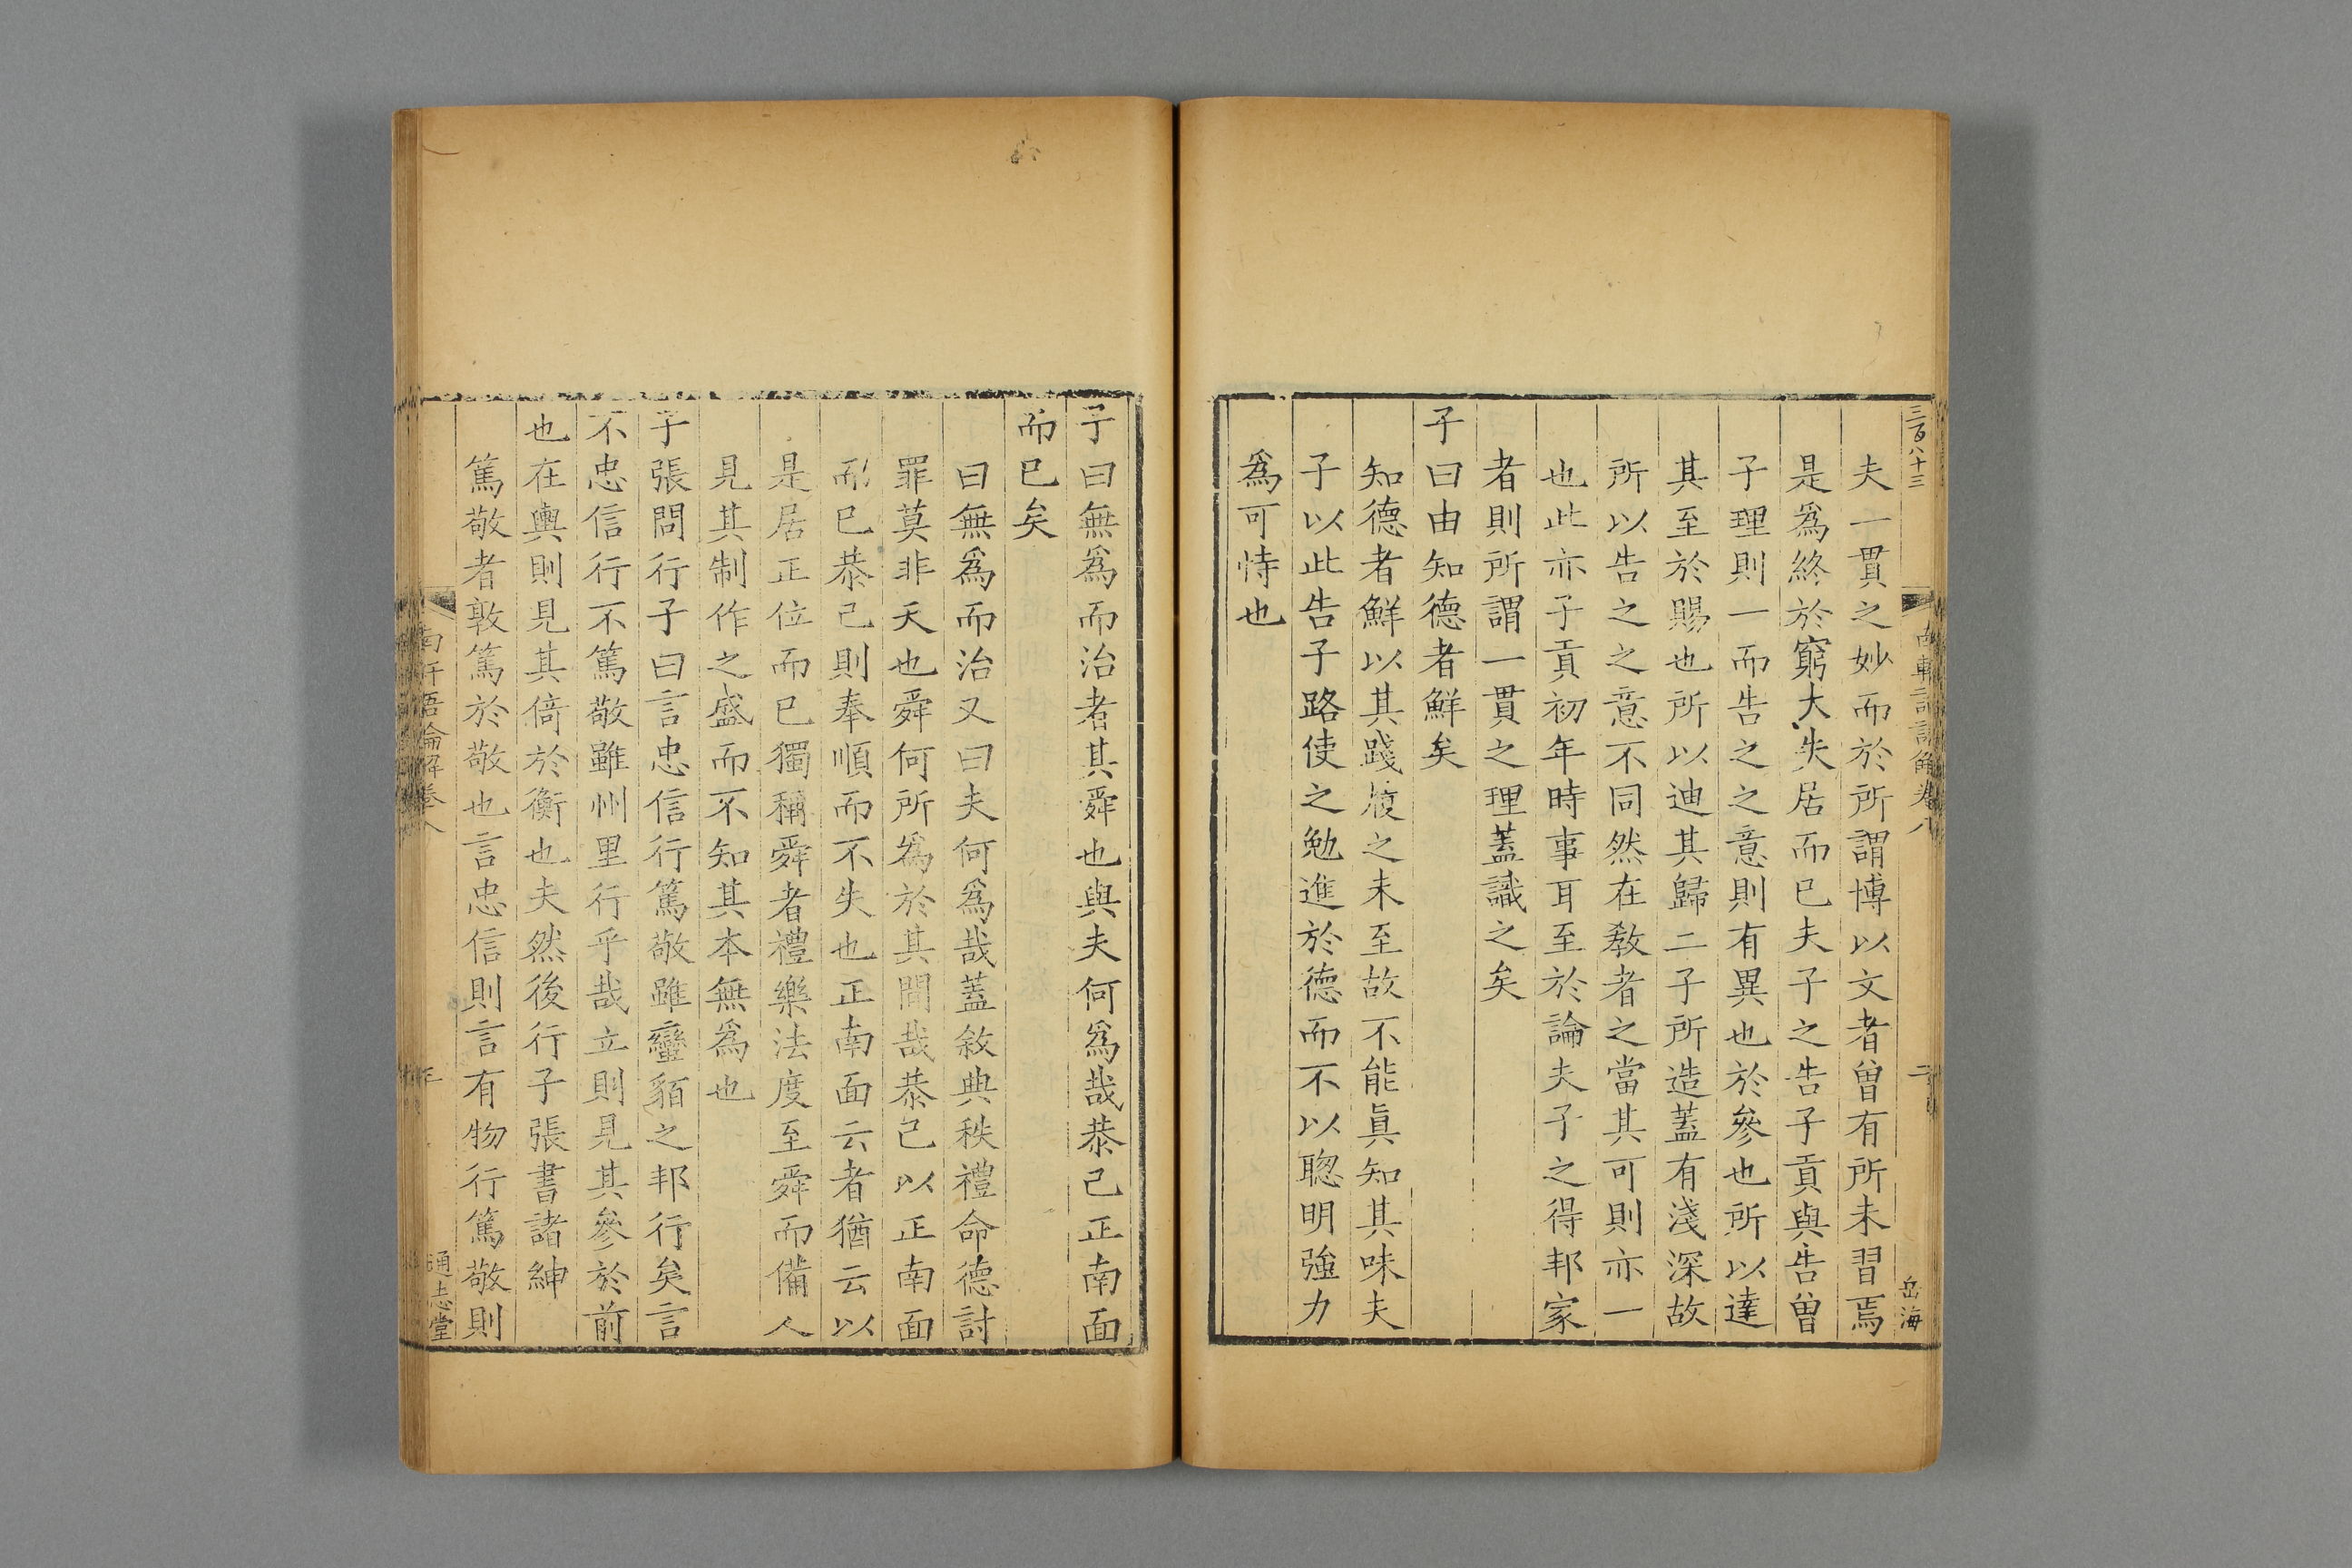 三百八十三
夫一貫之妙而於所謂博以文者曾有所未習焉
是爲終於窮大失居而已夫子之告子貢與告曾
子理則一而告之之意則有異也於參也所以達
其至於賜也所以迪其歸二子所造蓋有淺深故
所以告之之意不同然在教者之當其可則亦一
也此亦子貢初年時事耳至於論夫子之得邦家
者則所謂一貫之理蓋識之矣
子曰由知德者鮮矣
知德者鮮以其踐履之未至故不能眞知其味夫
子以此告子路使之勉進於德而不以聰明強力
爲可恃也
岳海
子曰無爲而治者其舜也與夫何爲哉恭己正南面
而已矣
曰無爲而治又曰夫何爲哉蓋敘典秩禮命德討
罪莫非天也舜何所爲於其間哉恭己以正南面
而已恭己則奉順而不失也正南面云者猶云以
是居正位而已獨稱舜者禮樂法度至舜而備人
見其制作之盛而不知其本無爲也
子張問行子曰言忠信行篤敬雖蠻貊之邦行矣言
不忠信行不篤敬雖州里行乎哉立則見其參於前
也在輿則見其倚於衡也夫然後行子張書諸紳
篤敬者敦篤於敬也言忠信則言有物行篤敬則
南軒語論解卷八
通志堂